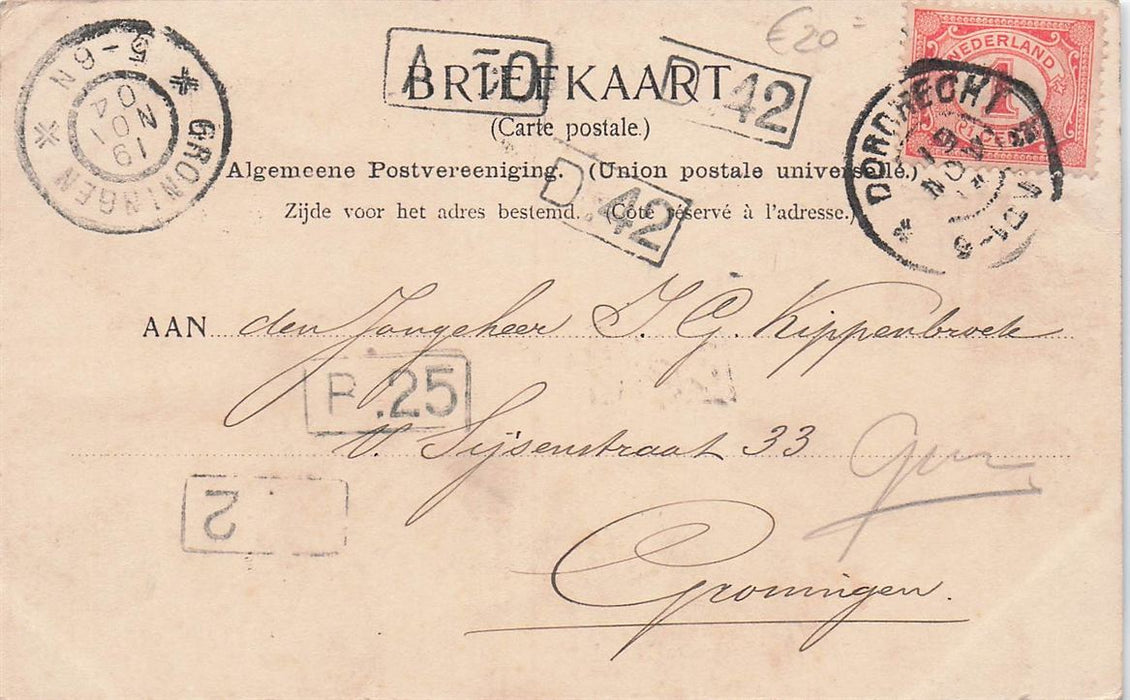 €20
NEDERLAND
1
CENT
A 50
BRIEFKAART
D 42
(Carte postale.)
Algemeene Postvereeniging. (Union postale universelle.)
D 42
Zijde voor het adres bestemd. (Côté réservé à l'adresse.)
* GRONINGEN *
5-6N
19 NOV
04
* DORDRECHT *
19 NOV
AAN den Jongeheer J. G. Kippenbroek
B .25
v. Sijsenstraat 33
2
Groningen.